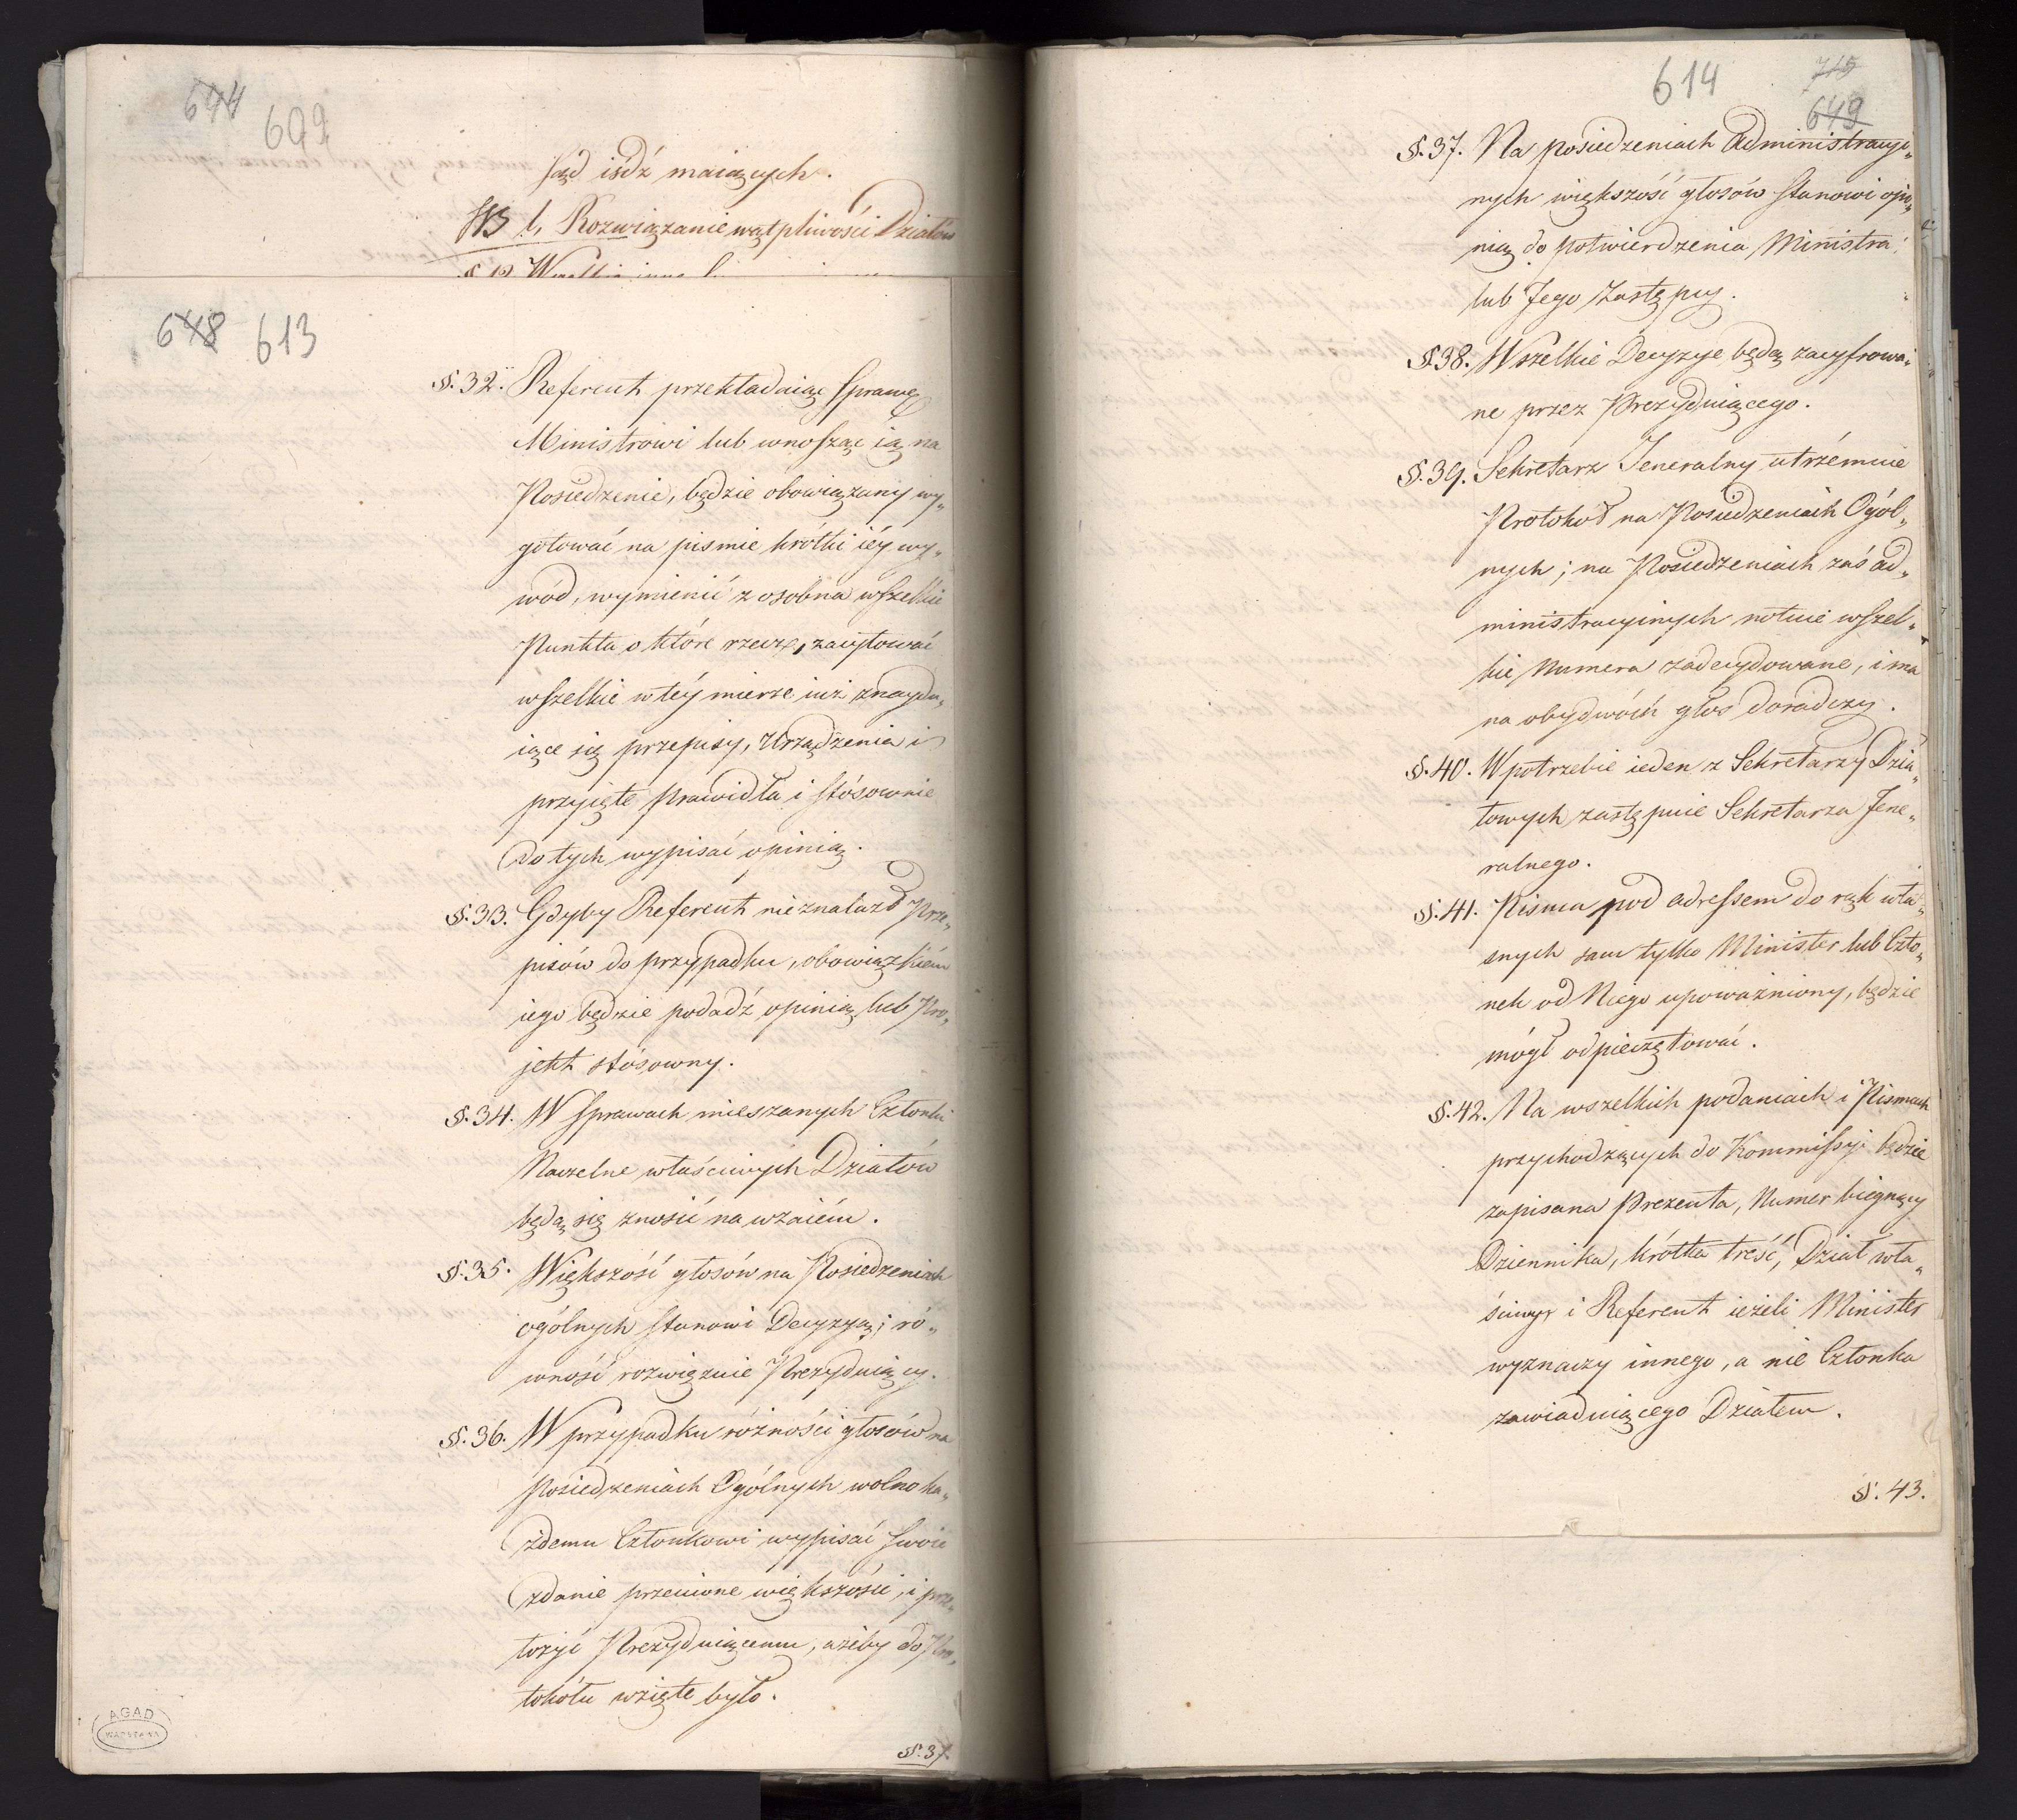 644 609
sąd iśdź maiących.
NB l, Rozwiązanie wątpliwości Działów
648 613
§.32. Referent przekładaiąc Sprawę
Ministrowi lub wnosząc ią na
Posiedzenie, będzie obowiązany wy„
gotować na pismie krótki iéy wy„
wód, wymienić z osobna wszelkie
Punkta o które rzecz, zacytować
wszelkie w téy mierze iuż znaydu„
iące się przepisy, Urządzenia i
przyięte prawidła i stósownie
do tych wypisać opinią.
§.33. Gdyby Referent nieznalazł Prze„
pisów do przypadku, obowiązkiem
iego będzie podadź opinią lub Pro„
jekt stósowny.
§.34. W Sprawach mieszanych Członki
Naczelne właściwych Działów
będą się znosić na wzaiém.
§.35. Większość głosów na Posiedzeniach
ogólnych stanowi Decyzyą; ró„
wność rozwiązuie Prezyduiący.
§.36. W przypadku różności głosów na
Posiedzeniach Ogólnych wolno ka„
żdemu Członkowi wypisać swoie
zdanie przeciwne większości, i prze„
łożyć Prezyduiącemu, ażeby do Pro„
tokółu wzięte było.
§.37.
AGAD
WARSZAWA
614 715
649
§.37. Na posiedzeniach Administracyi„
nych większość głosów stanowi opi„
nią do potwierdzenia Ministra
lub Jego Zastępcy.
§.38. Wszelkie Decyzye będą zacyfrowa„
ne przez Prezyduiącego.
§.39. Sekretarz Jeneralny utrzémuie
Protokoł na Posiedzeniach Ogól„
nych; na Posiedzeniach zaś ad„
ministracyinych notuie wszel„
kie Numera zadecydowane, i ma
na obydwóch głos doradczy.
§.40. W potrzebie ieden z Sekretarzy Dzia„
łowych zastępuie Sekretarza Jene„
ralnego.
§.41. Pisma pod adressem do rąk wła„
snych sam tylko Minister lub Czło„
nek od Niego upoważniony, będzie
mógł odpieczętować.
§.42. Na wszelkich podaniach i Pismach
przychodzących do Kommissyi będzie
zapisana Prezenta, Numer biegnący
Dziennika, krótka treść, Dział wła„
ściwy i Referent ieżeli Minister
wyznaczy innego, a nie Członka
zawiaduiącego Działem.
§.43.